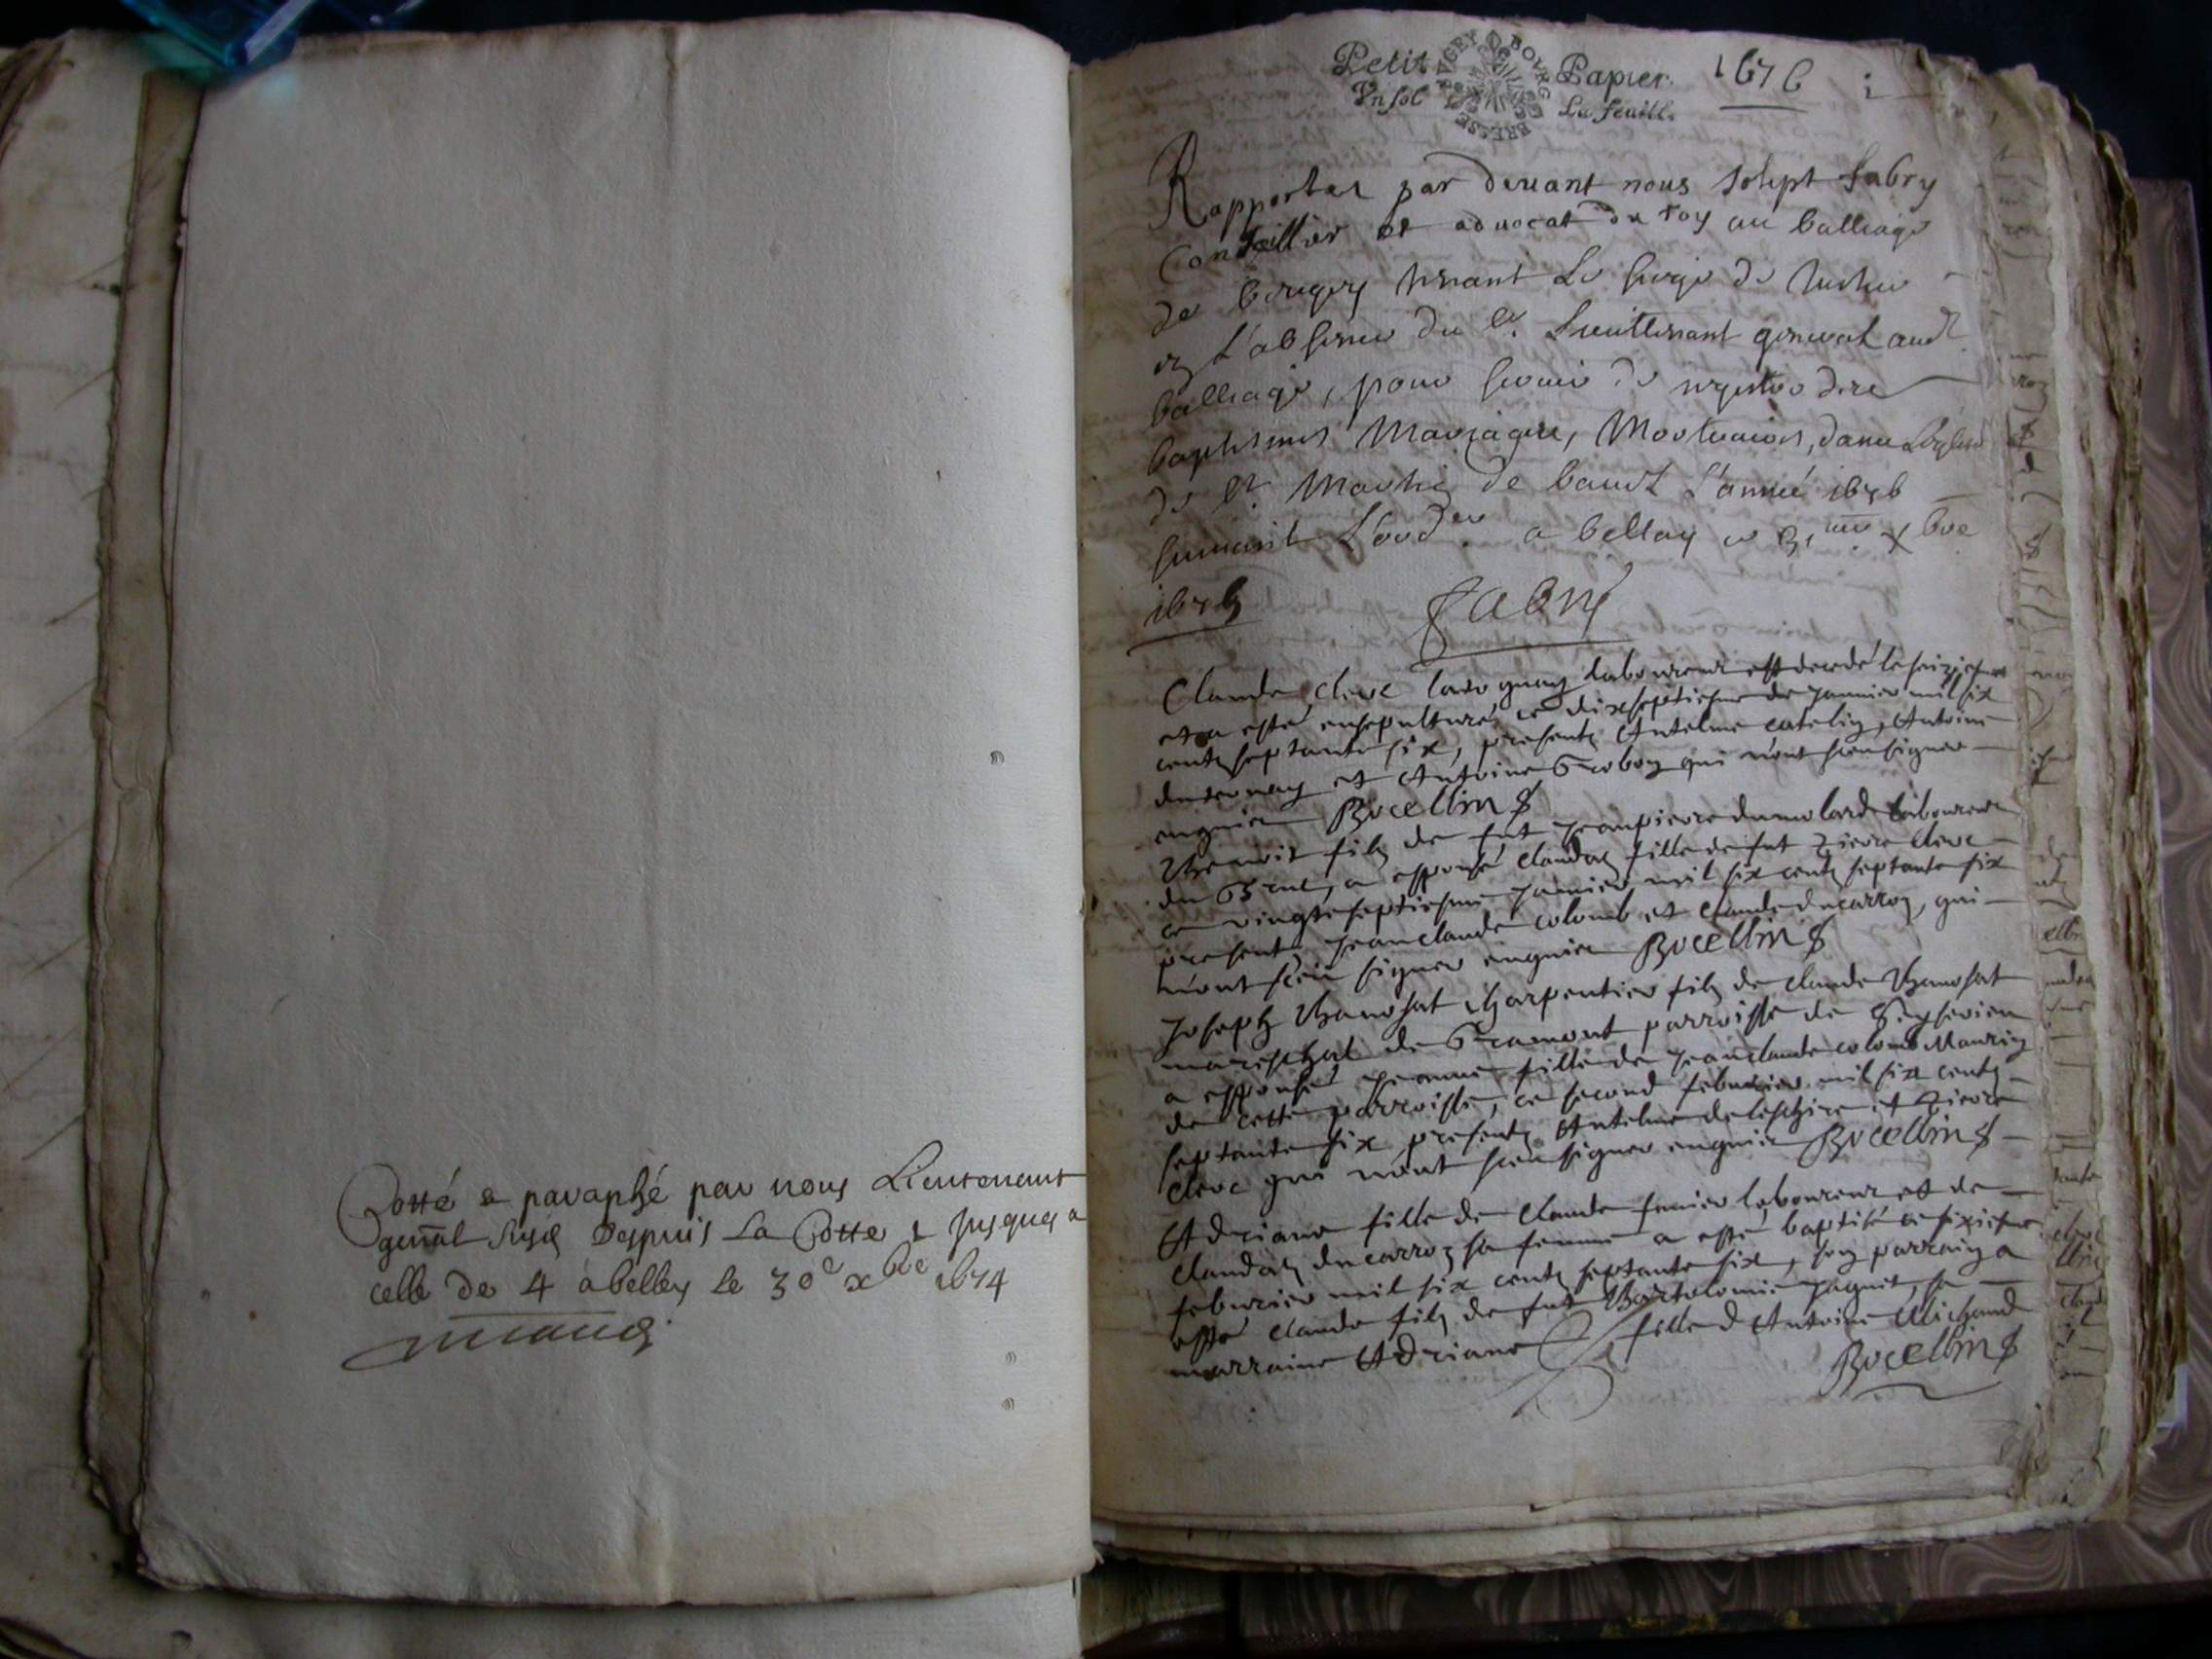 Cotté e paraphé par nous Lieutenant
gen̄al Despuis La Cotte 1 jusques a
celle de 4 a belley le 30e xbre 1674
Petit Papier 1676 i
Un sol La feuille
BVGEY BOVRG BRESSE
Rapporter par devant nous Joseph fabry
Conseiller et advocat du roy au balliage
de beugey tenant Le siege de Justice
en L'absence du Sr. Lieuttenant general aud.
balliage, pour servir de registre de
baptesmes Mariages, Mortuaires, dans Leglise
de St Martin de L'année 1676
suivant L'ordce a belley ce xbre
1675 fabry
Claude cleve laboureur est decedé le seiziesme
et a esté ensepulturé ce dixseptiesme de Janvier mil six
cents septante six, presents Antelme catelin, Antoine
et Antoine Grobon qui n'ont sceu signer
enquis Bocellin
Benoit filz de fut Jeanpierre dumolard laboureur
du a espousé Claudaz fille de fut Pierre cleve
ce vingtseptiesme Janvier mil six cents septante six
presents Jeanclaude colomb et Claude ducarroz, qui
n'ont sceu signer enquis Bocellin
Joseph charpentier filz de Claude
mareschal de Gramont parroisse de
a espousé Jeanne fille de Jeanclaude colomb Maurin
de cette parroisse, ce second febvrier mil six cents
septante six presents Antelme et Pierre
cleve qui n'ont sceu signer enquis Bocellin
Adriane fille de Claude laboureur et de
Claudaz ducarroz sa femme a esté baptisé ce sixiesme
febvrier mil six cents septante six, son parrain a
esté Claude filz de fut Bartolomie Jaquet, sa
marraine Adriane fille d'Antoine Michaud
Bocellin